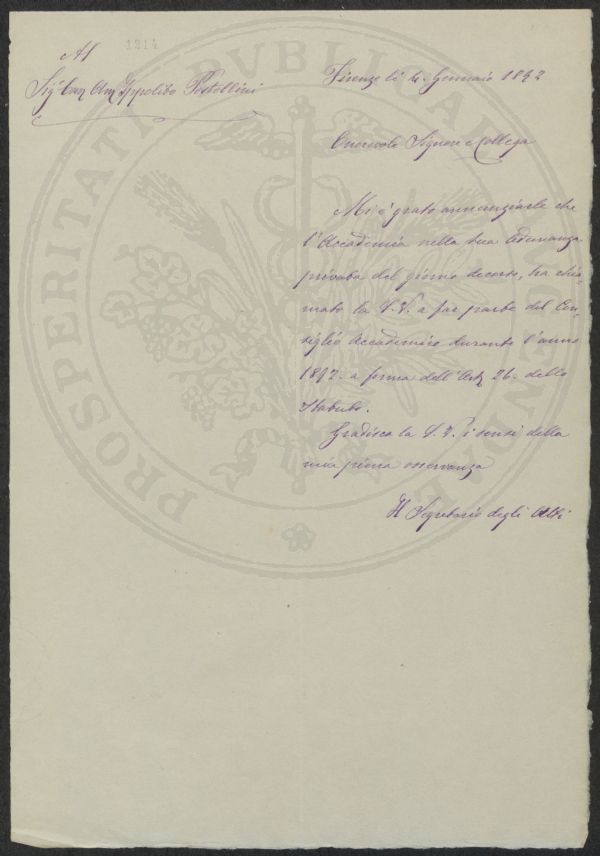 1214
Al
Sig Cav Avv Ippolito Pestellini
Firenze li 4. Gennaio 1892
Onorevole Signore e Collega
Mi è grato annunziarle che
l'Accademia nella sua Adunanza
privata del giorno decorso, ha chia-
mato la S. V. a far parte del Con-
siglio Accademico durante l'anno
1892. a forma dell'Art 26. dello
Statuto.
Gradisca la S. V. i sensi della
mia piena osservanza
Il Segretario degli Atti
PROSPERITATI PUBLICAE AUGENDAE